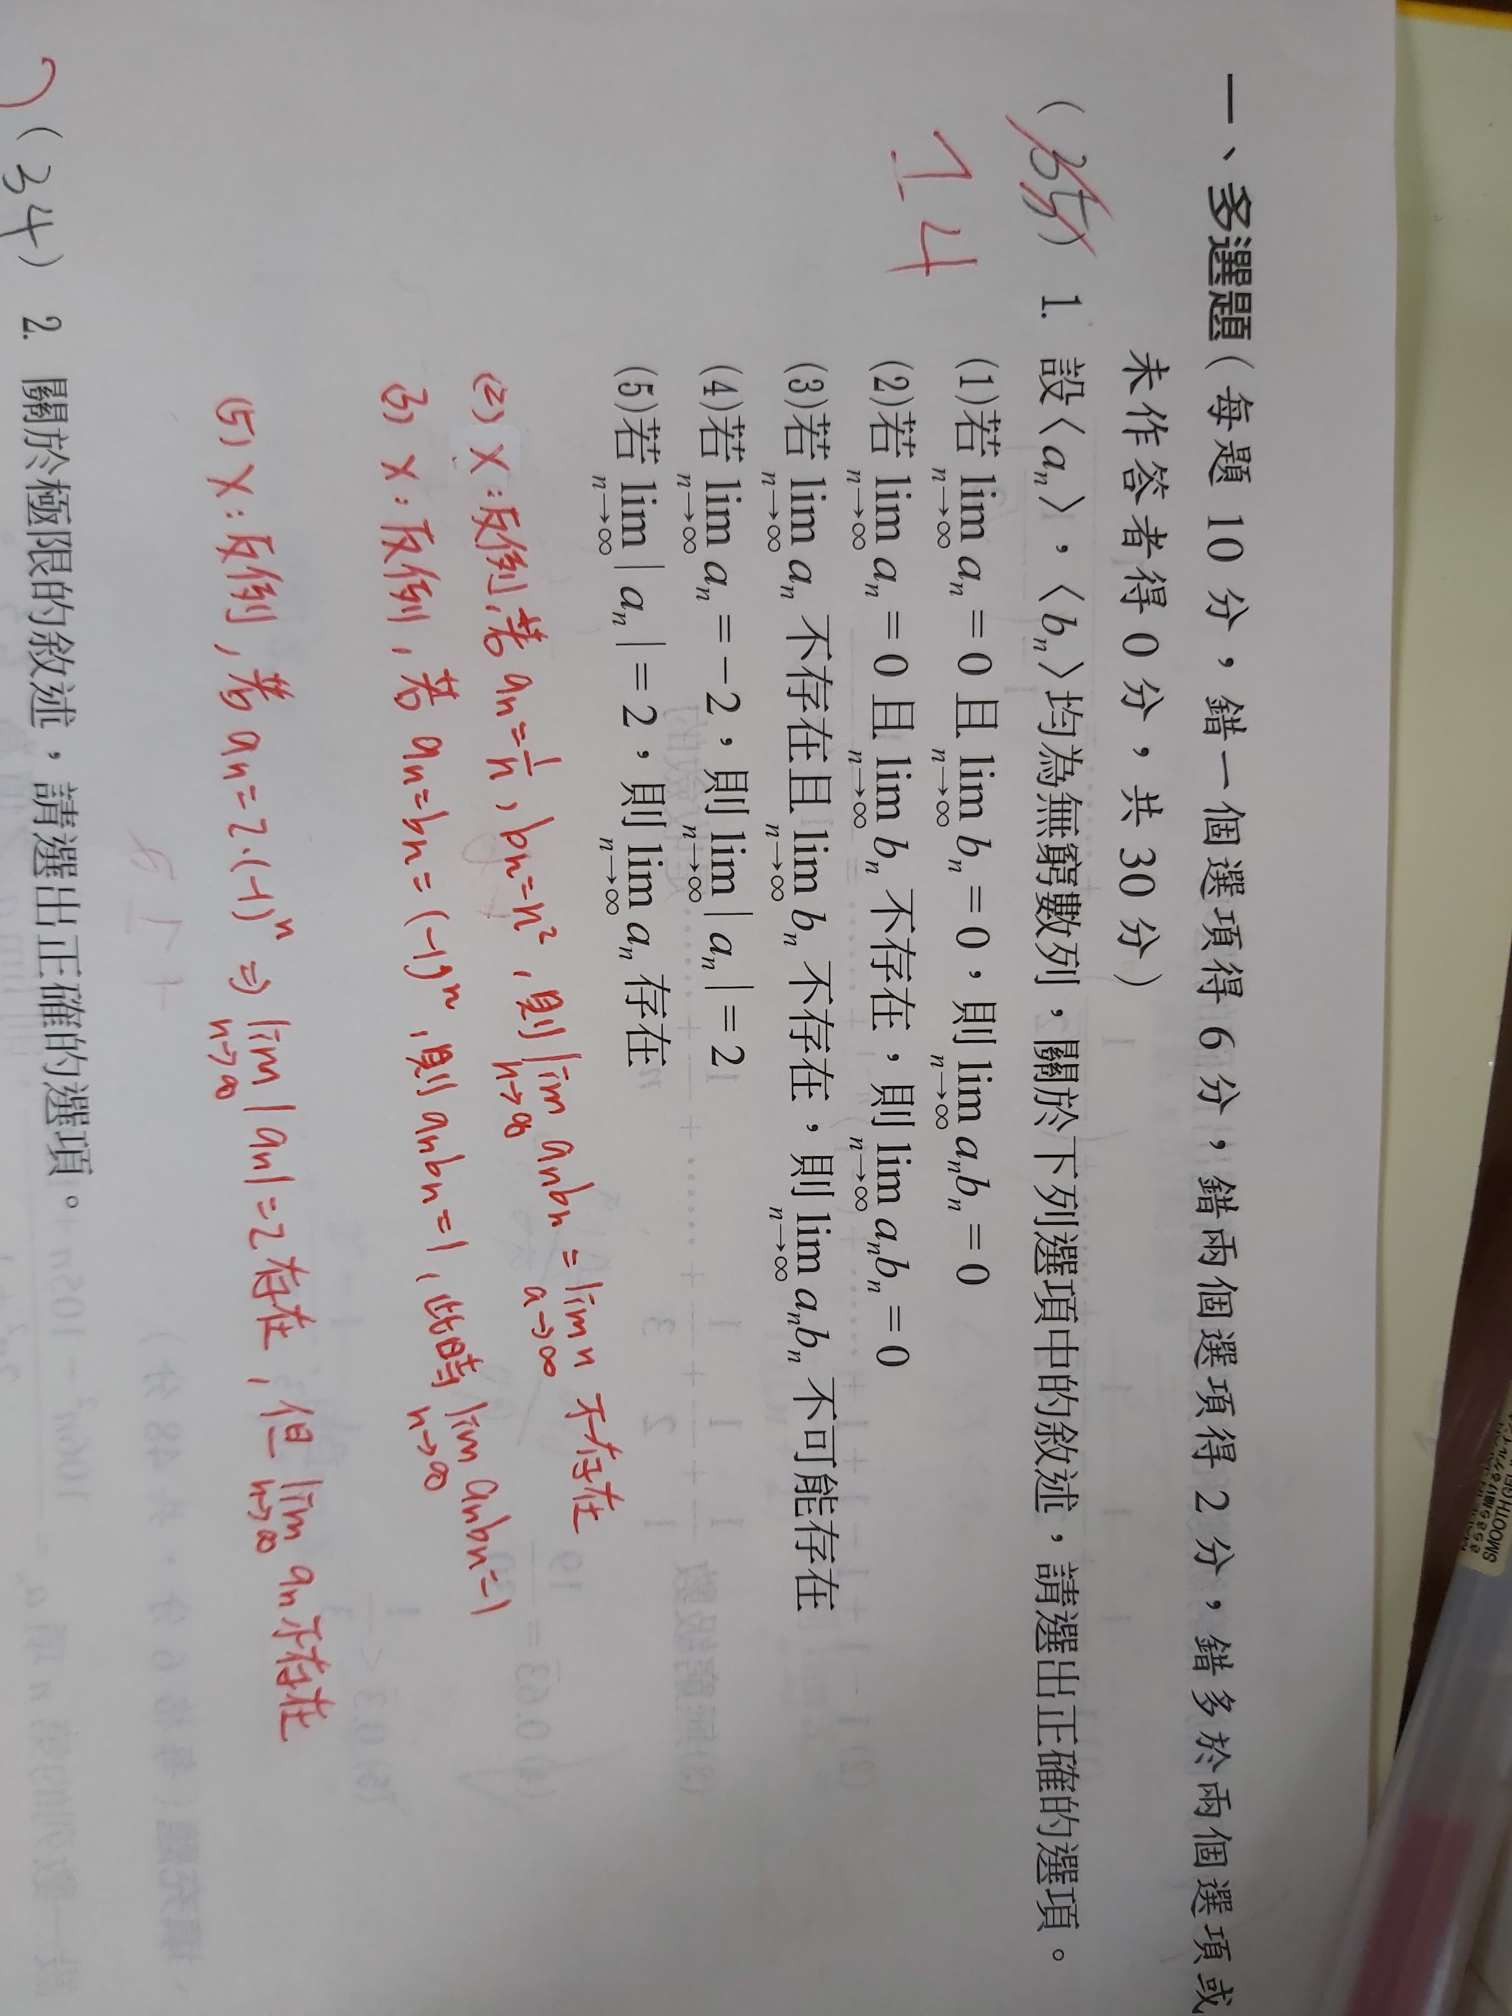 一、多選題(每題 10 分，錯一個選項得 6 分，錯兩個選項得 2 分，錯多於兩個選項或
未作答者得 0 分，共 30 分)
( 35 ) 1. 設〈aₙ〉，〈bₙ〉均為無窮數列，關於下列選項中的敘述，請選出正確的選項。
14
(1)若 lim n→∞ aₙ = 0 且 lim n→∞ bₙ = 0，則 lim n→∞ aₙbₙ = 0
(2)若 lim n→∞ aₙ = 0 且 lim n→∞ bₙ 不存在，則 lim n→∞ aₙbₙ = 0
(3)若 lim n→∞ aₙ 不存在且 lim n→∞ bₙ 不存在，則 lim n→∞ aₙbₙ 不可能存在
(4)若 lim n→∞ aₙ = -2，則 lim n→∞ | aₙ | = 2
(5)若 lim n→∞ | aₙ | = 2，則 lim n→∞ aₙ 存在
(2) X：反例，若 an = 1/n，bn = n²，則 lim n→∞ anbn = lim a→∞ n 不存在
(3) X：反例，若 an = bn = (-1)ⁿ，則 anbn = 1，此時 lim n→∞ anbn = 1
(5) X：反例，若 an = 2·(-1)ⁿ ⇒ lim n→∞ |an| = 2 存在，但 lim n→∞ an 不存在
( 34 ) 2. 關於極限的敘述，請選出正確的選項。
SMOOTH